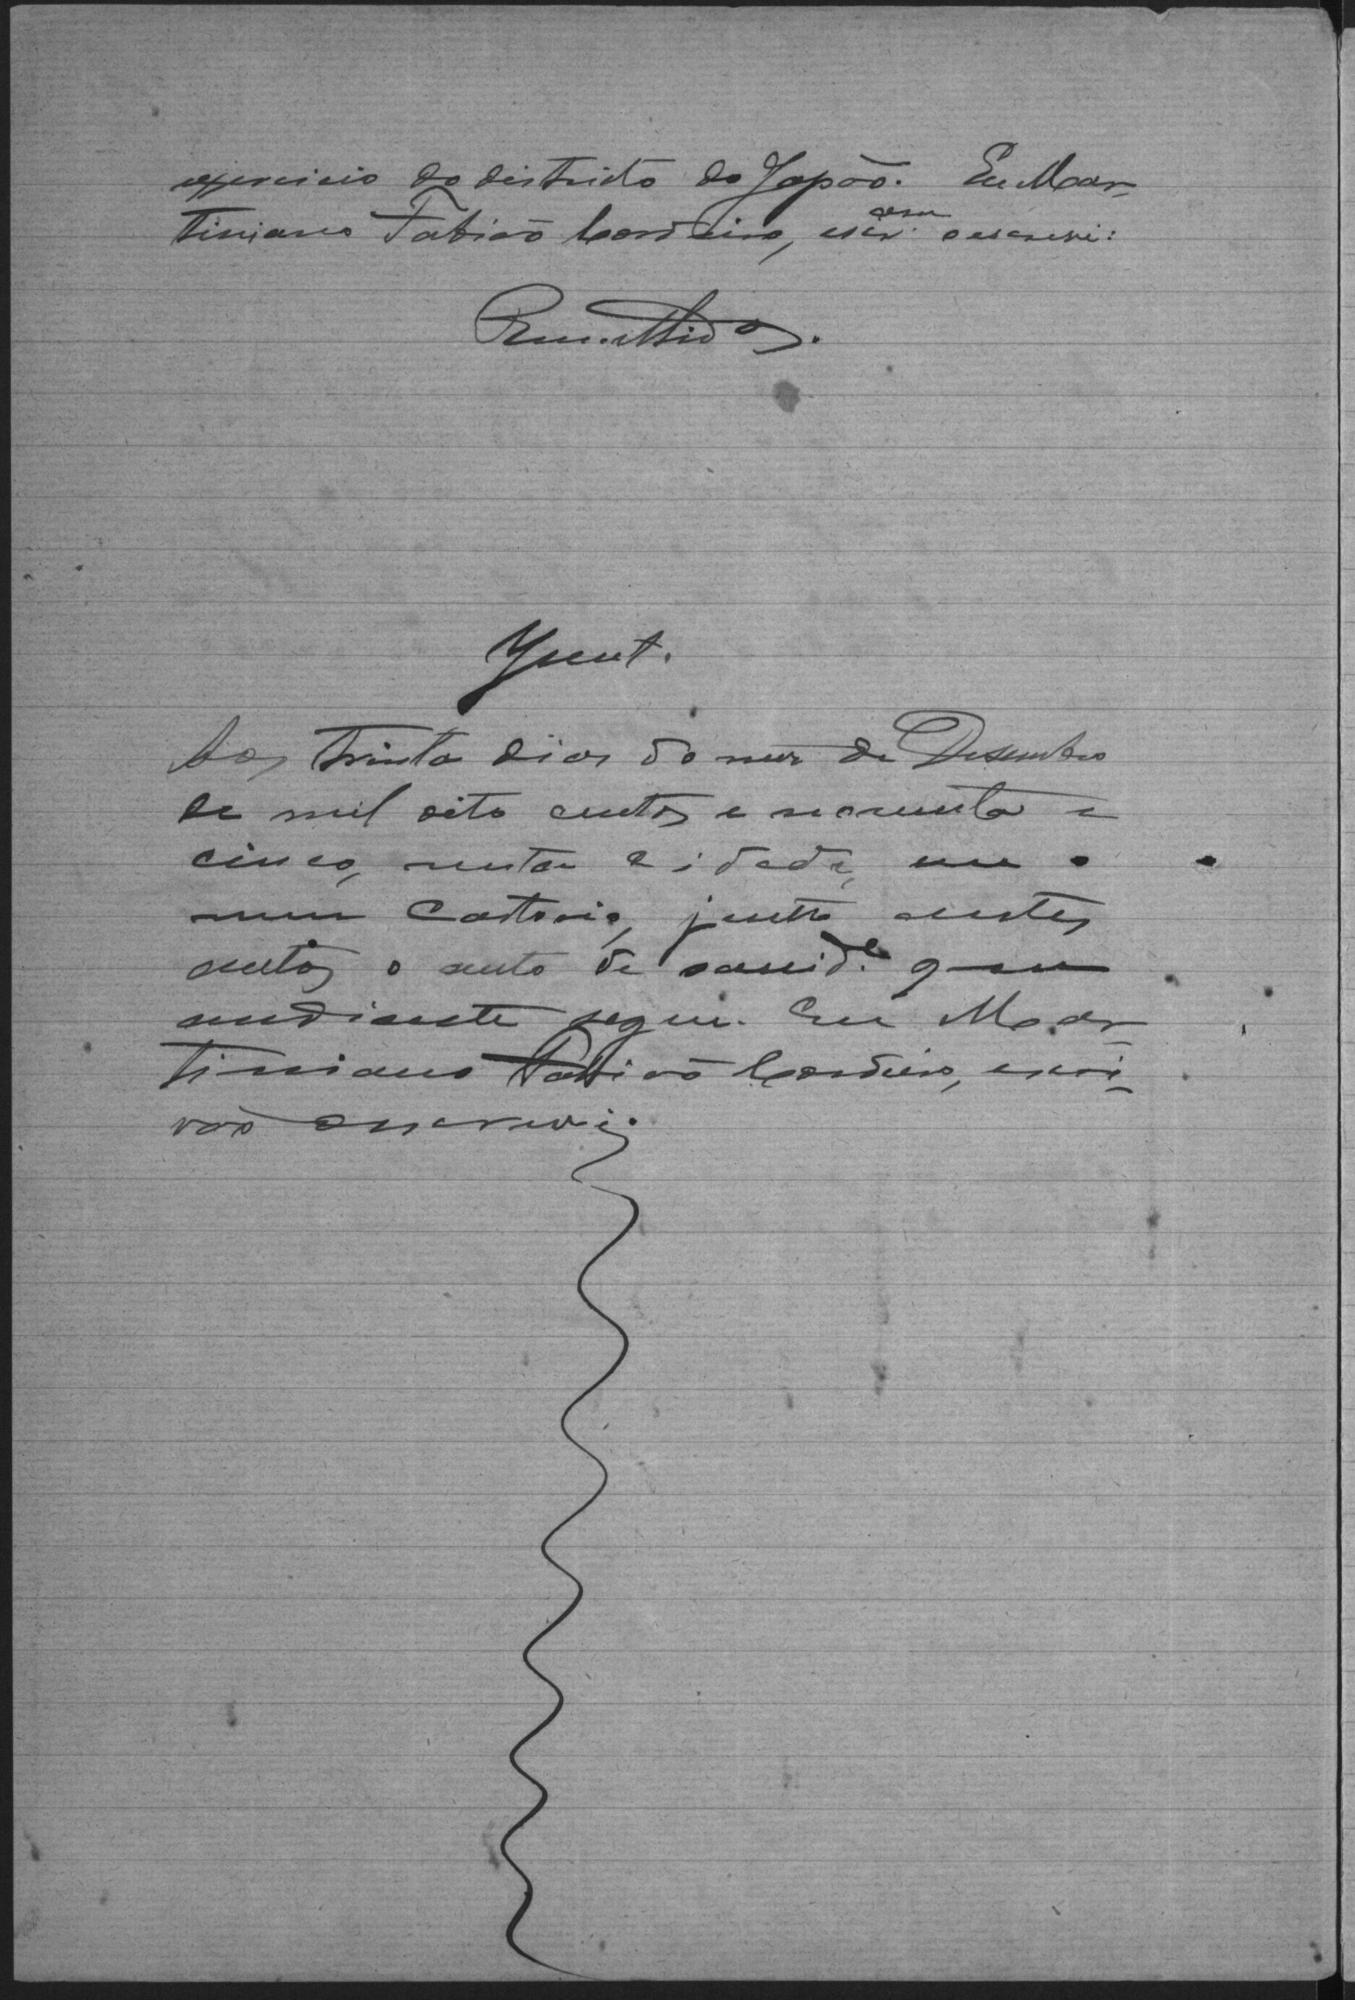 exercicio do districto do Japão. Eu Mar-
tiniano Fabião Cordeiro, escr.am o escrevi:
Remettidos.
Junt.
Aos trinta dias do mez de Desembro
de mil oito centos e noventa e
cinco, nesta cidade, em
meu Cartorio, junto a estes
autos o auto de sanid.e que
adiante segue. Eu Mar-
tiniano Fabião Cordeiro, escri-
vão o escrevi.